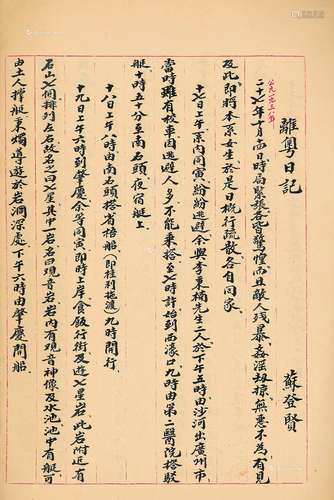 離粵日記
蘇登賢
公元一九三八年
二十七年十月 日時局緊張各皆驚惶而且敵人殘暴姦淫刼掠無惡不為有見
及此即將本系女生於是日概行疏散各自回家
十七日上午京内同寅紛紛逃避余與李東橘先生二人於下午五時由沙河出廣州市
當時雖有校車因逃避人多不能乘搭至七時許始到西濠口九時由第二醫院搭駁
艇十時五十分至南石頭夜宿艇上
十八日上午八時由南石頭搭省梧船(即往利拖渡)九時開行
十九日上午六時到肇慶余等同寅即時上岸食飯行街及遊七星岩此岩附近有
石山七個排列左右故名之曰七星其中一岩名曰觀音岩岩内有觀音神像及水池池中有艇可
由土人撑艇秉燭導遊於岩洞深處下午六時由肇慶開船